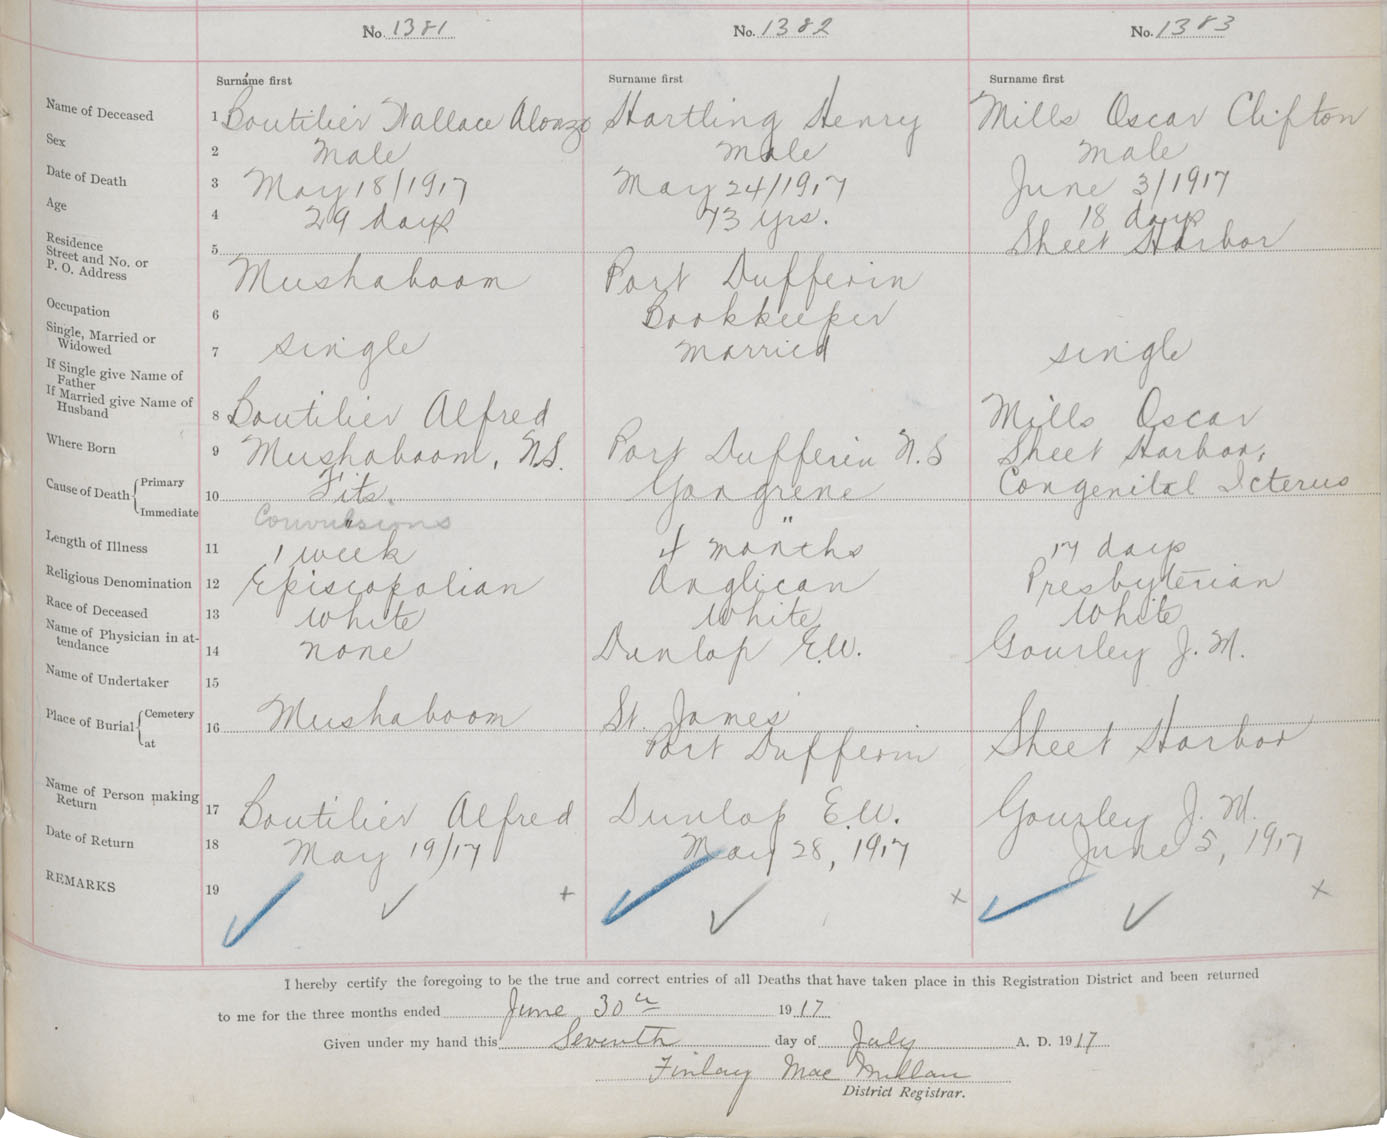 No. 1381 No. 1382 No. 1383
Surname first Surname first Surname first
Name of Deceased 1 Boutilier Wallace Alonzo Hartling Henry Mills Oscar Clifton
Sex 2 Male Male Male
Date of Death 3 May 18/1917 May 24/1917 June 3/1917
Age 4 29 days 73 yrs. 18 days
Residence
Street and No. or
P. O. Address 5 Mushaboom Port Dufferin Sheet Harbor
Occupation 6 Bookkeeper
Single, Married or
Widowed 7 single married single
If Single give Name of
Father
If Married give Name of
Husband 8 Boutilier Alfred Mills Oscar
Where Born 9 Mushaboom, N.S. Port Dufferin N.S Sheet Harbor,
Cause of Death { Primary 10 Fits. Gangrene Congenital Icterus
Immediate Convulsions "
Length of Illness 11 1 week 4 months 17 days
Religious Denomination 12 Episcopalian Anglican Presbyterian
Race of Deceased 13 White White White
Name of Physician in at-
tendance 14 none Dunlop E.W. Gourley J. M.
Name of Undertaker 15
Place of Burial { Cemetery 16 Mushaboom St. James' Sheet Harbor
at Port Dufferin
Name of Person making
Return 17 Boutilier Alfred Dunlop E.W. Gourley J. M.
Date of Return 18 May 19/17 May 28, 1917 June 5, 1917
REMARKS 19
I hereby certify the foregoing to be the true and correct entries of all Deaths that have taken place in this Registration District and been returned
to me for the three months ended June 30th 1917
Given under my hand this Seventh day of July A. D. 1917
Finlay MacMillan
District Registrar.